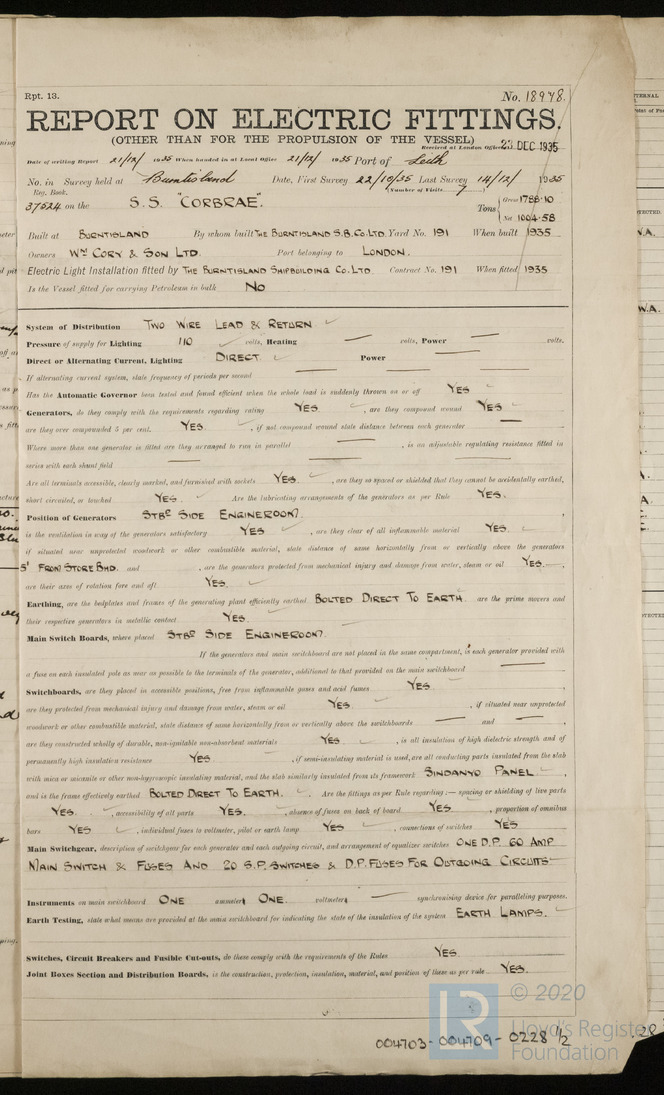 Rpt. 13.
No. 18978.
REPORT ON ELECTRIC FITTINGS.
(OTHER THAN FOR THE PROPULSION OF THE VESSEL)
Received at London Office 23 DEC 1935
Date of writing Report 21/12/ 1935 When handed in at Local Office 21/12/ 1935 Port of Leith
No. in Survey held at Burntisland Date, First Survey 22/10/35 Last Survey 14/12/ 1935
Reg. Book. (Number of Visits 7)
37624 on the S.S. "CORBRAE". Tons Gross 1788.10 Net 1004.58
Built at BURNTISLAND By whom built THE BURNTISLAND S.B. Co. LTD. Yard No. 191 When built 1935
Owners WM CORY & SON LTD. Port belonging to LONDON.
Electric Light Installation fitted by THE BURNTISLAND SHIPBUILDING Co. LTD Contract No. 191 When fitted 1935
Is the Vessel fitted for carrying Petroleum in bulk NO
System of Distribution TWO WIRE LEAD & RETURN
Pressure of supply for Lighting 110 volts, Heating — volts, Power — volts.
Direct or Alternating Current, Lighting DIRECT Power —
If alternating current system, state frequency of periods per second —
Has the Automatic Governor been tested and found efficient when the whole load is suddenly thrown on or off YES
Generators, do they comply with the requirements regarding rating YES, are they compound wound YES
are they over compounded 5 per cent. YES., if not compound wound state distance between each generator —
Where more than one generator is fitted are they arranged to run in parallel —, is an adjustable regulating resistance fitted in
series with each shunt field —
Are all terminals accessible, clearly marked, and furnished with sockets YES, are they so spaced or shielded that they cannot be accidentally earthed,
short circuited, or touched YES. Are the lubricating arrangements of the generators as per Rule YES.
Position of Generators STBD SIDE ENGINEROOM.
is the ventilation in way of the generators satisfactory YES, are they clear of all inflammable material YES.
if situated near unprotected woodwork or other combustible material, state distance of same horizontally from or vertically above the generators
5' FROM STORE BHD. and , are the generators protected from mechanical injury and damage from water, steam or oil YES.
are their axes of rotation fore and aft YES.
Earthing, are the bedplates and frames of the generating plant efficiently earthed BOLTED DIRECT TO EARTH. are the prime movers and
their respective generators in metallic contact YES.
Main Switch Boards, where placed STBD SIDE ENGINEROOM.
If the generators and main switchboard are not placed in the same compartment, is each generator provided with
a fuse on each insulated pole as near as possible to the terminals of the generator, additional to that provided on the main switchboard —
Switchboards, are they placed in accessible positions, free from inflammable gases and acid fumes YES.
are they protected from mechanical injury and damage from water, steam or oil YES., if situated near unprotected
woodwork or other combustible material, state distance of same horizontally from or vertically above the switchboards — and —,
are they constructed wholly of durable, non-ignitable non-absorbent materials YES, is all insulation of high dielectric strength and of
permanently high insulation resistance YES, if semi-insulating material is used, are all conducting parts insulated from the slab
with mica or micanite or other non-hygroscopic insulating material, and the slab similarly insulated from its framework SINDANYO PANEL.
and is the frame effectively earthed BOLTED DIRECT TO EARTH. Are the fittings as per Rule regarding:— spacing or shielding of live parts
YES., accessibility of all parts YES., absence of fuses on back of board YES, proportion of omnibus
bars YES, individual fuses to voltmeter, pilot or earth lamp YES, connections of switches YES
Main Switchgear, description of switchgear for each generator and each outgoing circuit, and arrangement of equalizer switches ONE D.P. 60 AMP
MAIN SWITCH & FUSES AND 20 S.P. SWITCHES & D.P. FUSES FOR OUTGOING CIRCUITS
Instruments on main switchboard ONE ammeter ONE voltmeter — synchronising device for paralleling purposes.
Earth Testing, state what means are provided at the main switchboard for indicating the state of the insulation of the system EARTH LAMPS.
Switches, Circuit Breakers and Fusible Cut-outs, do these comply with the requirements of the Rules YES.
Joint Boxes Section and Distribution Boards, is the construction, protection, insulation, material, and position of these as per rule YES.
© 2020
LR Lloyd's Register
Foundation
004703-004709-0228 1/2